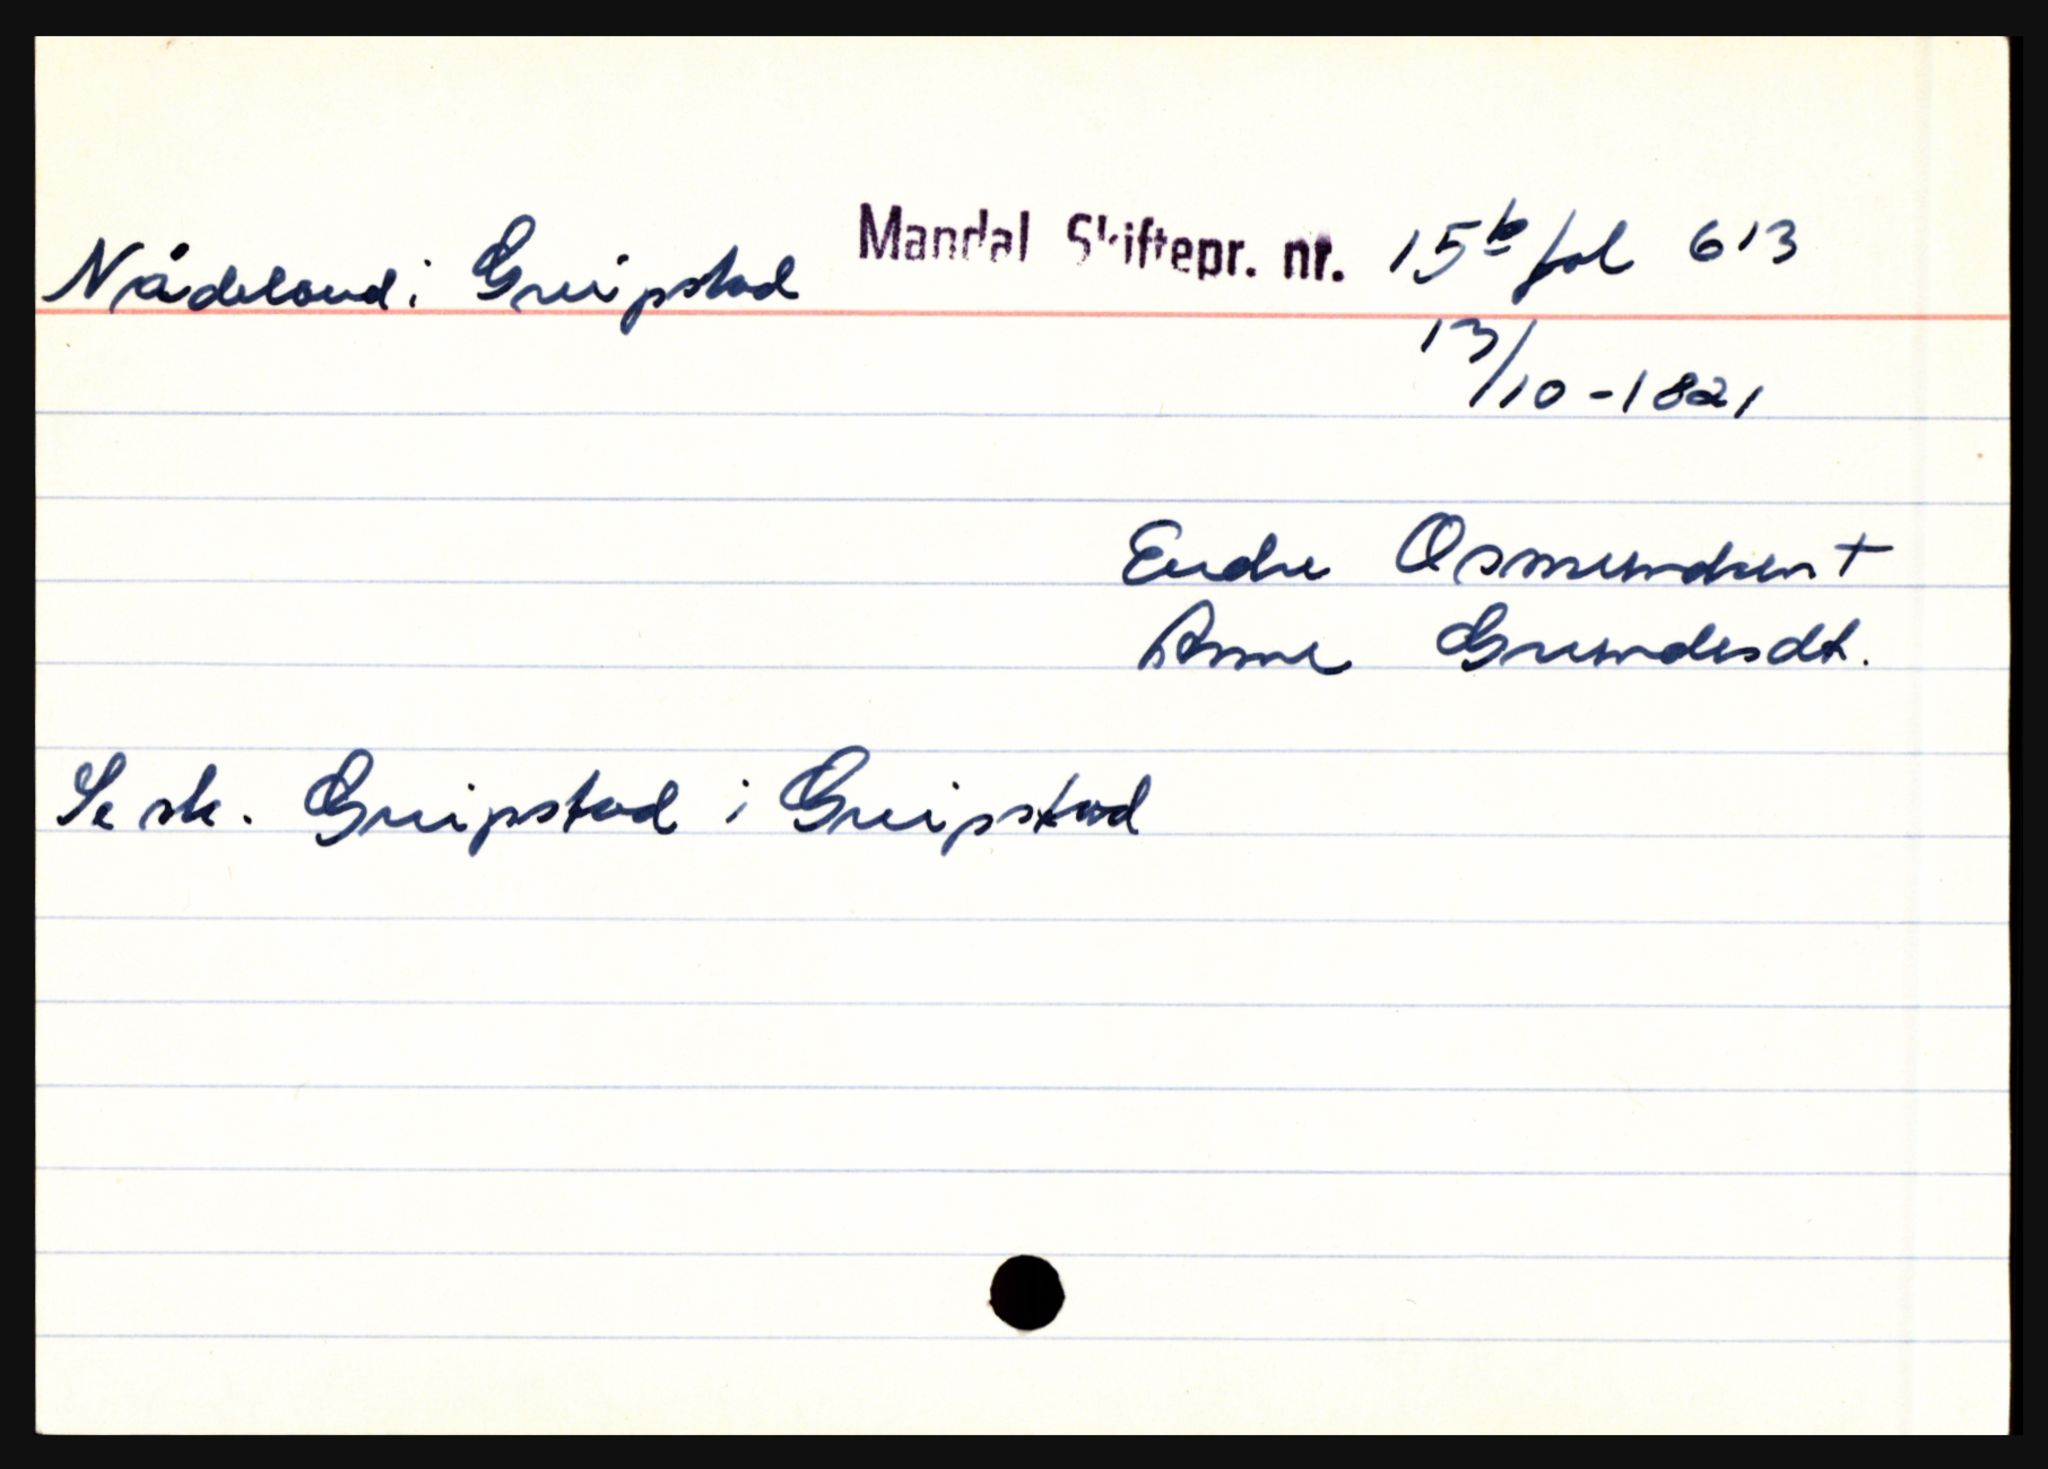 Nådeland i Greipstad Mandal Skiftepr. nr. 15b fol 613
13/10-1821
Endre Osmundsen +
Anne Gundersdt.
Se sk. Greipstad i Greipstad